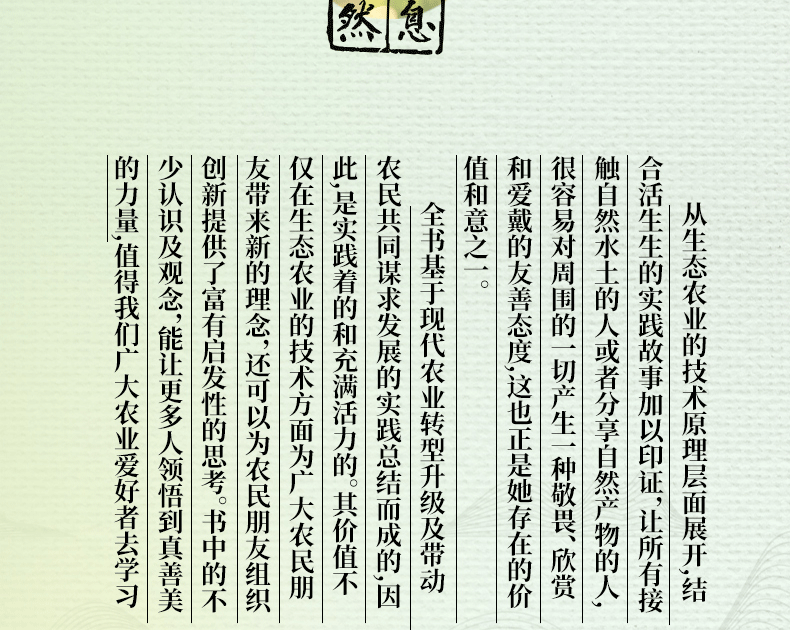 息
然
从生态农业的技术原理层面展开,结
合活生生的实践故事加以印证,让所有接
触自然水土的人或者分享自然产物的人,
很容易对周围的一切产生一种敬畏、欣赏
和爱戴的友善态度,这也正是她存在的价
值和意之一。
全书基于现代农业转型升级及带动
农民共同谋求发展的实践总结而成的,因
此,是实践着的和充满活力的。其价值不
仅在生态农业的技术方面为广大农民朋
友带来新的理念,还可以为农民朋友组织
创新提供了富有启发性的思考。书中的不
少认识及观念,能让更多人领悟到真善美
的力量,值得我们广大农业爱好者去学习